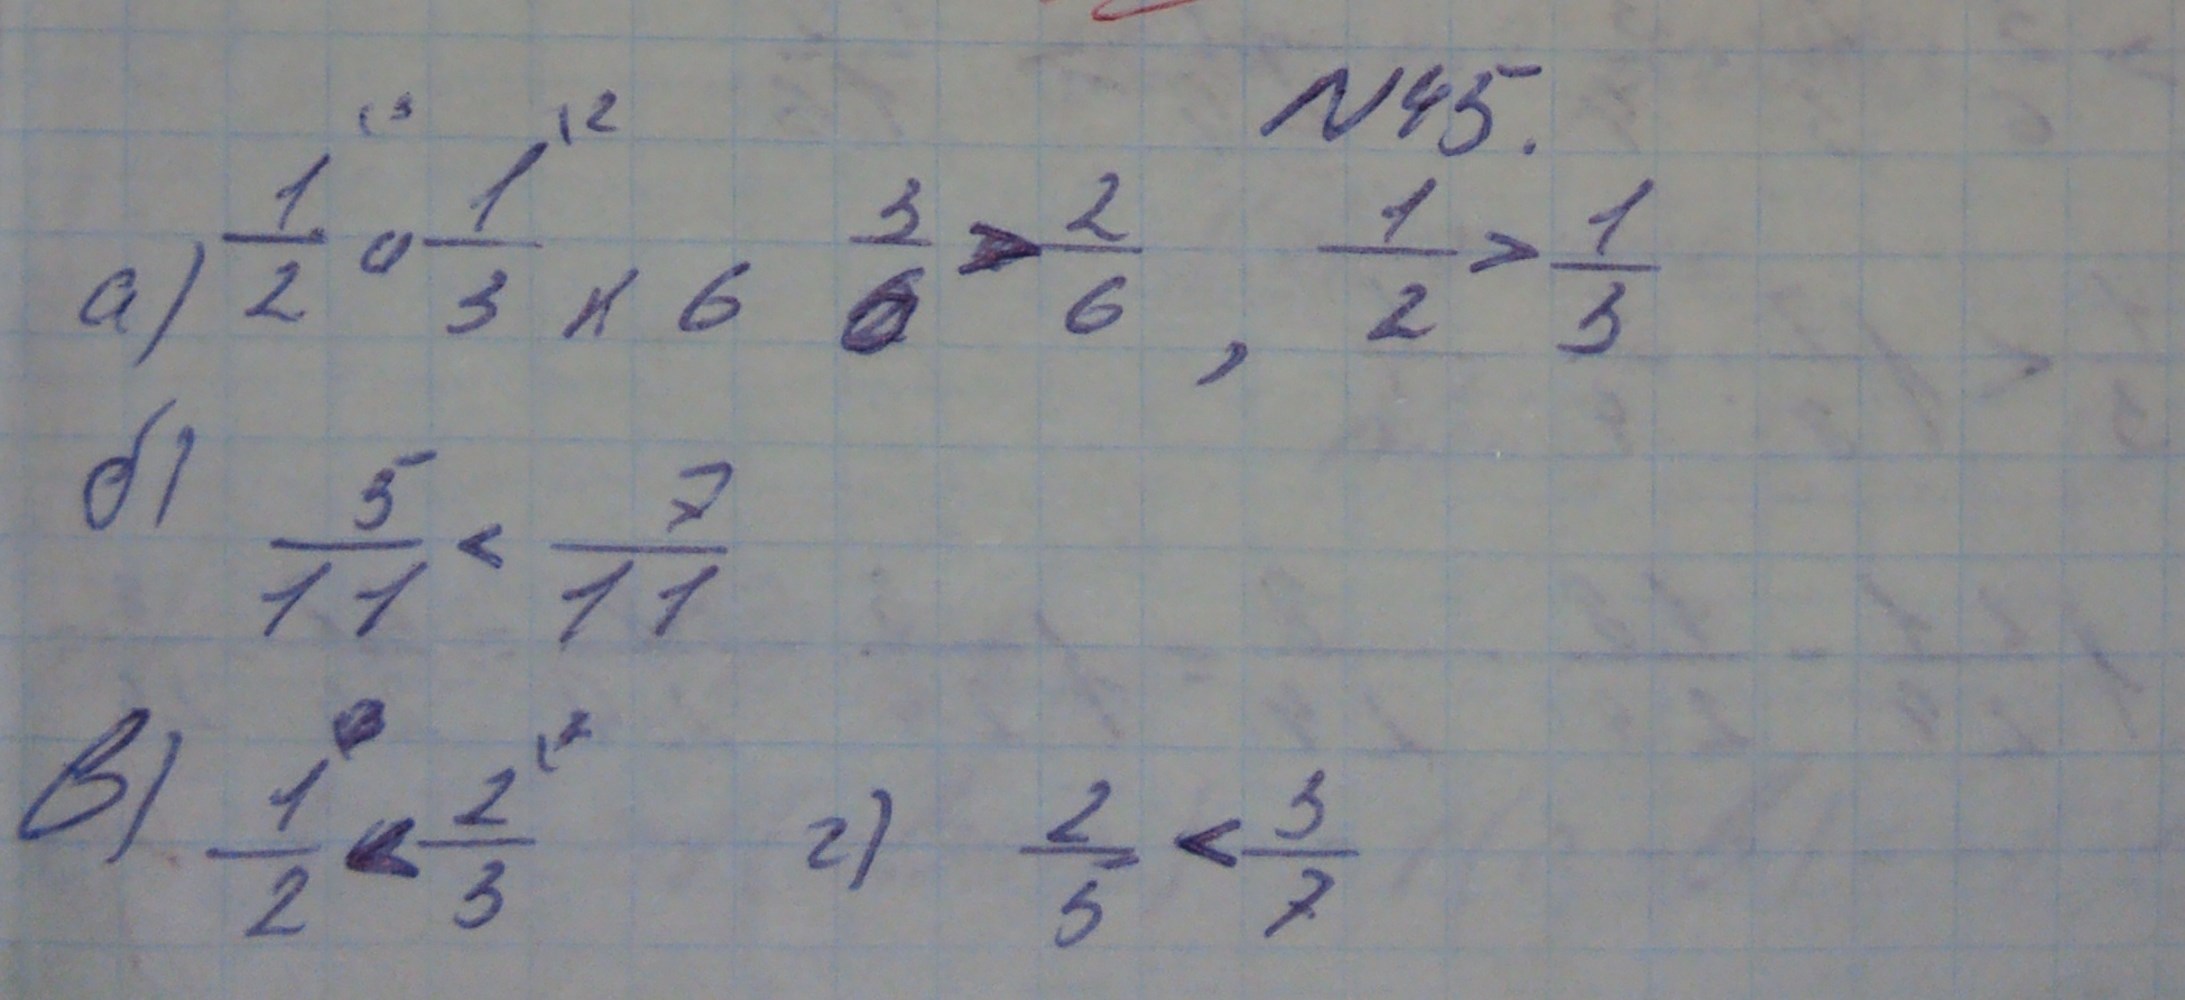 N45.
а) 1/2 и 1/3 к 6 3/6 > 2/6, 1/2 > 1/3
б) 5/11 < 7/11
в) 1/2 < 2/3 г) 2/5 < 3/7